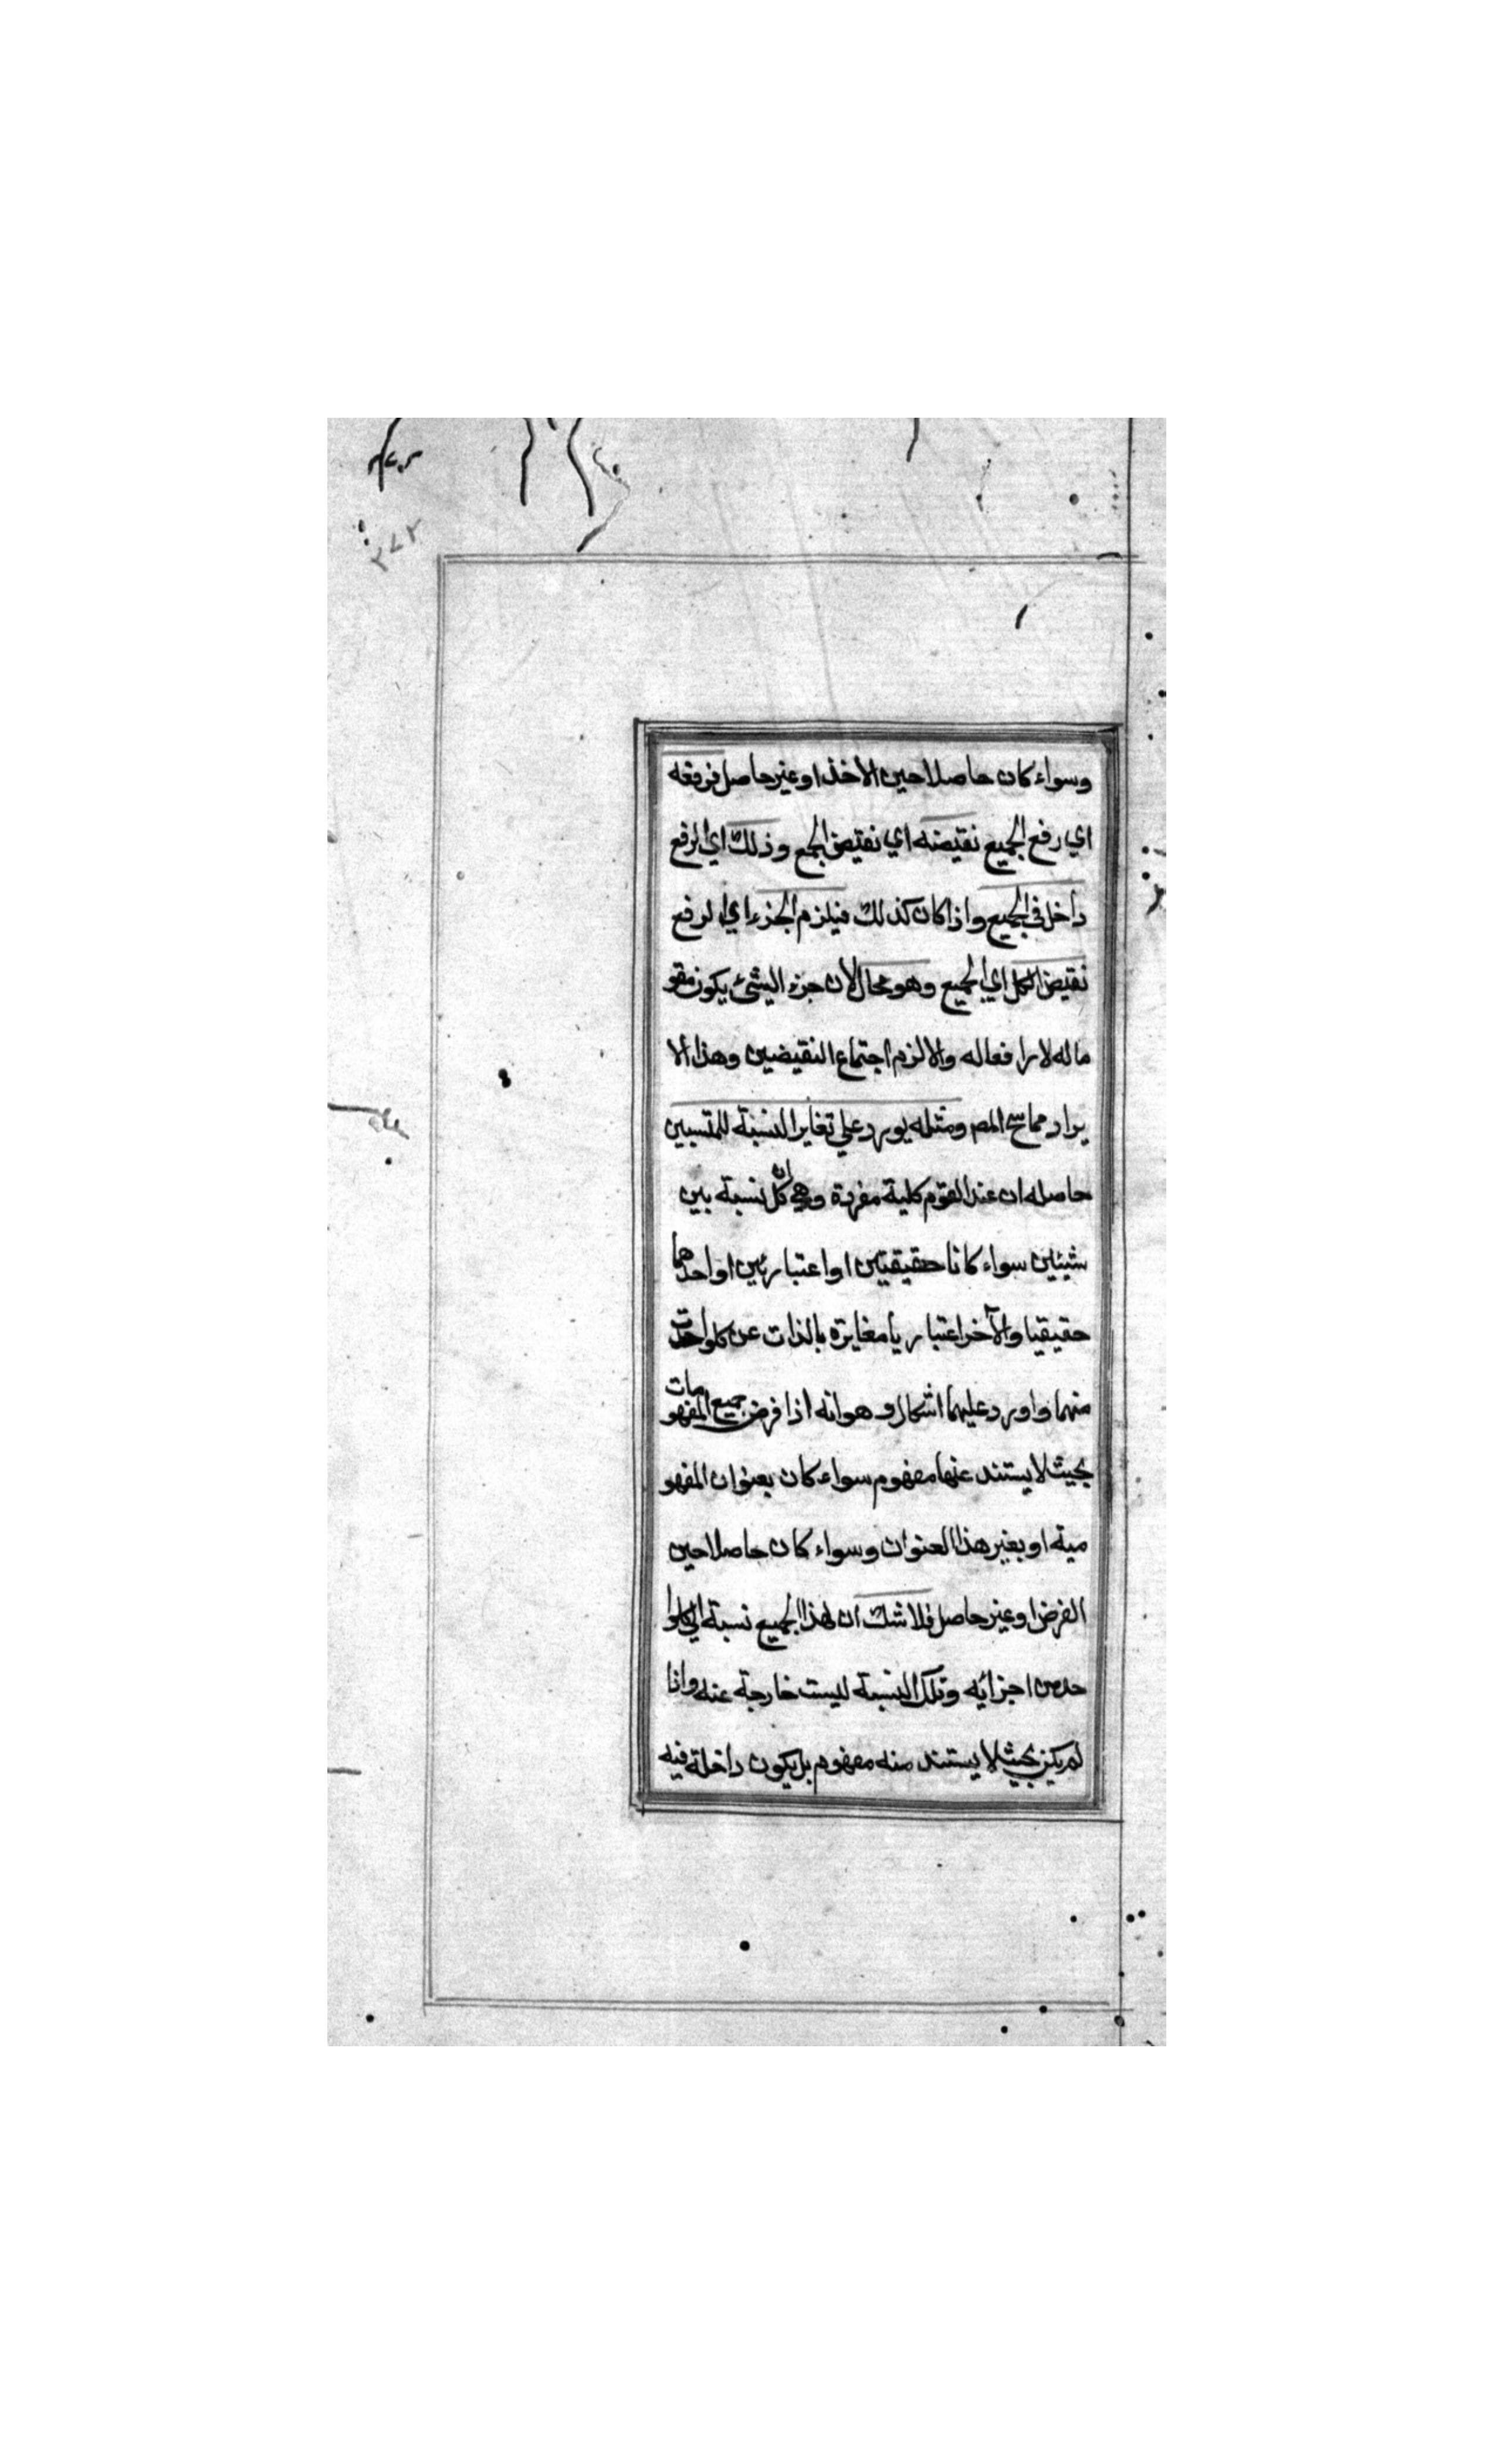 ٢٧٢
وسواء كان حاصلا حين الاخذ او غير حاصل فرفعه
اي رفع الجميع نقيضه اي نقيض الجمع وذلك اي الرفع
داخل في الجميع واذا كان كذلك فيلزم الجزء اي الرفع
نقيض الكل اي الجميع وهو محال لان جزء الشئ يكون مقو
ماله لا رافعاله والا لزم اجتماع النقيضين وهذا الا
يراد مما سخ المص ومثله يورد علي تغاير النسبة للمنتسبين
حاصله ان عند القوم كلية مفردة وهي ان كل نسبة بين
شيئين سواء كانا حقيقيتين او اعتباريين او احدهما
حقيقيا والآخر اعتباريا مغايرة بالذات عن كلواحدت
منهما واورد عليهما اشكال وهو انه اذا فرض جميع المفهومات
بحيث لا يستند عنها مفهوم سواء كان بعنوان المفهو
مية او بغير هذا العنوان وسواء كان حاصلا حين
الفرض او غير حاصل فلا شك ان لهذا الجميع نسبة الي كلوا
حد من اجزائه وتلك النسبة ليست خارجة عنه وانا
لم يكن بحيث لا يستند منه مفهوم بل يكون داخلة فيه